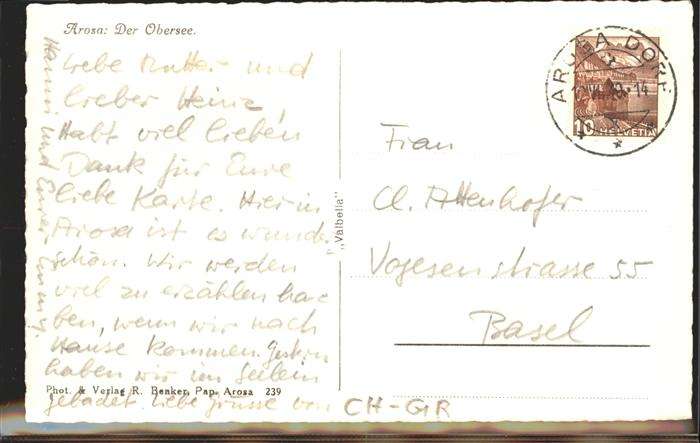 Arosa: Der Obersee.
Liebe Mutter und
lieber Heinz,
Habt viel lieben
Dank für Eure
liebe Karte. Hier in
Arosa ist es wunder
schön. Wir werden
viel zu erzählen ha-
ben, wenn wir nach
Hause kommen. Gestern
haben wir im Seelein
gebadet. Liebe Grüsse von
Hanni und Eurer Emmy.
Phot. & Verlag R. Benker, Pap. Arosa 239
"Valbella"
AROSA DORF
10 HELVETIA
Frau
Cl. Attenhofer
Vogesenstrasse 55
Basel
CH-GR